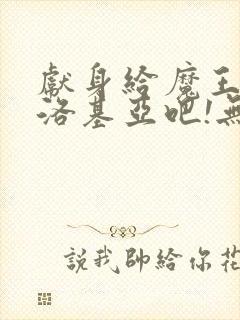 獻身給魔王
洛基亞吧!無
說我帥給你花